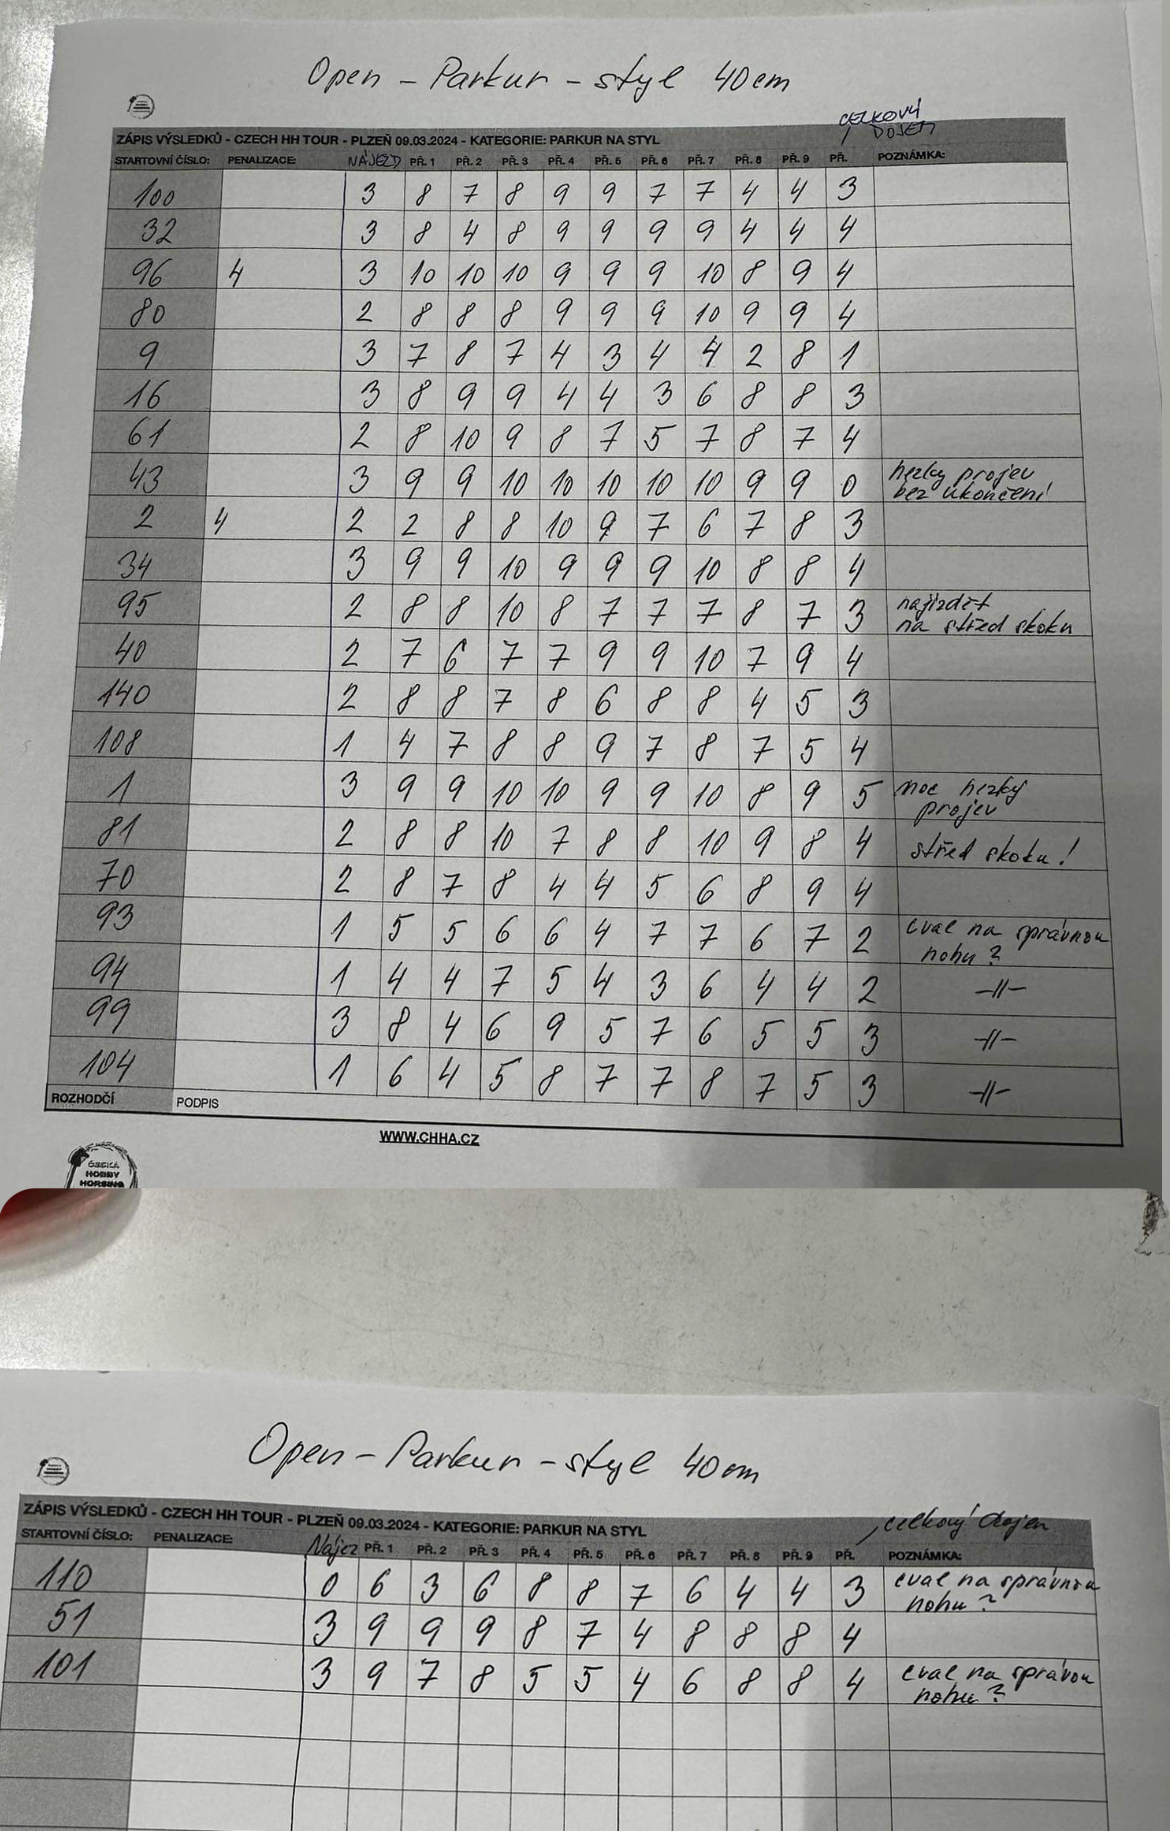 Open - Parkur - styl 40cm
CELKOVÝ
DOJEM
ZÁPIS VÝSLEDKŮ - CZECH HH TOUR - PLZEŇ 09.03.2024 - KATEGORIE: PARKUR NA STYL
STARTOVNÍ ČÍSLO: PENALIZACE: NÁJEZD PŘ. 1 PŘ. 2 PŘ. 3 PŘ. 4 PŘ. 5 PŘ. 6 PŘ. 7 PŘ. 8 PŘ. 9 PŘ. POZNÁMKA:
100 3 8 7 8 9 9 7 7 4 4 3
32 3 8 4 8 9 9 9 9 4 4 4
96 4 3 10 10 10 9 9 9 10 8 9 4
80 2 8 8 8 9 9 9 10 9 9 4
9 3 7 8 7 4 3 4 4 2 8 1
16 3 8 9 9 4 4 3 6 8 8 3
61 2 8 10 9 8 7 5 7 8 7 4
43 3 9 9 10 10 10 10 10 9 9 0 hezky projev
bez ukončení
2 4 2 2 8 8 10 9 7 6 7 8 3
34 3 9 9 10 9 9 9 10 8 8 4
95 2 8 8 10 8 7 7 7 8 7 3 najíždět
na střed skoku
40 2 7 6 7 7 9 9 10 7 9 4
140 2 8 8 7 8 6 8 8 4 5 3
108 1 4 7 8 8 9 7 8 7 5 4
1 3 9 9 10 10 9 9 10 8 9 5 moc hezký
projev
81 2 8 8 10 7 8 8 10 9 8 4 střed skoku!
70 2 8 7 8 4 4 5 6 8 9 4
93 1 5 5 6 6 4 7 7 6 7 2 cval na správnou
nohu?
94 1 4 4 7 5 4 3 6 4 4 2 -//-
99 3 8 4 6 9 5 7 6 5 5 3 -//-
104 1 6 4 5 8 7 7 8 7 5 3 -//-
ROZHODČÍ PODPIS
WWW.CHHA.CZ
ČESKÁ
HOBBY
HORSING
Open - Parkur - styl 40cm
celkový dojem
ZÁPIS VÝSLEDKŮ - CZECH HH TOUR - PLZEŇ 09.03.2024 - KATEGORIE: PARKUR NA STYL
STARTOVNÍ ČÍSLO: PENALIZACE: Nájez PŘ. 1 PŘ. 2 PŘ. 3 PŘ. 4 PŘ. 5 PŘ. 6 PŘ. 7 PŘ. 8 PŘ. 9 PŘ. POZNÁMKA:
110 0 6 3 6 8 8 7 6 4 4 3 cval na správnou
nohu?
51 3 9 9 9 8 7 4 8 8 8 4
101 3 9 7 8 5 5 4 6 8 8 4 cval na správou
nohu?